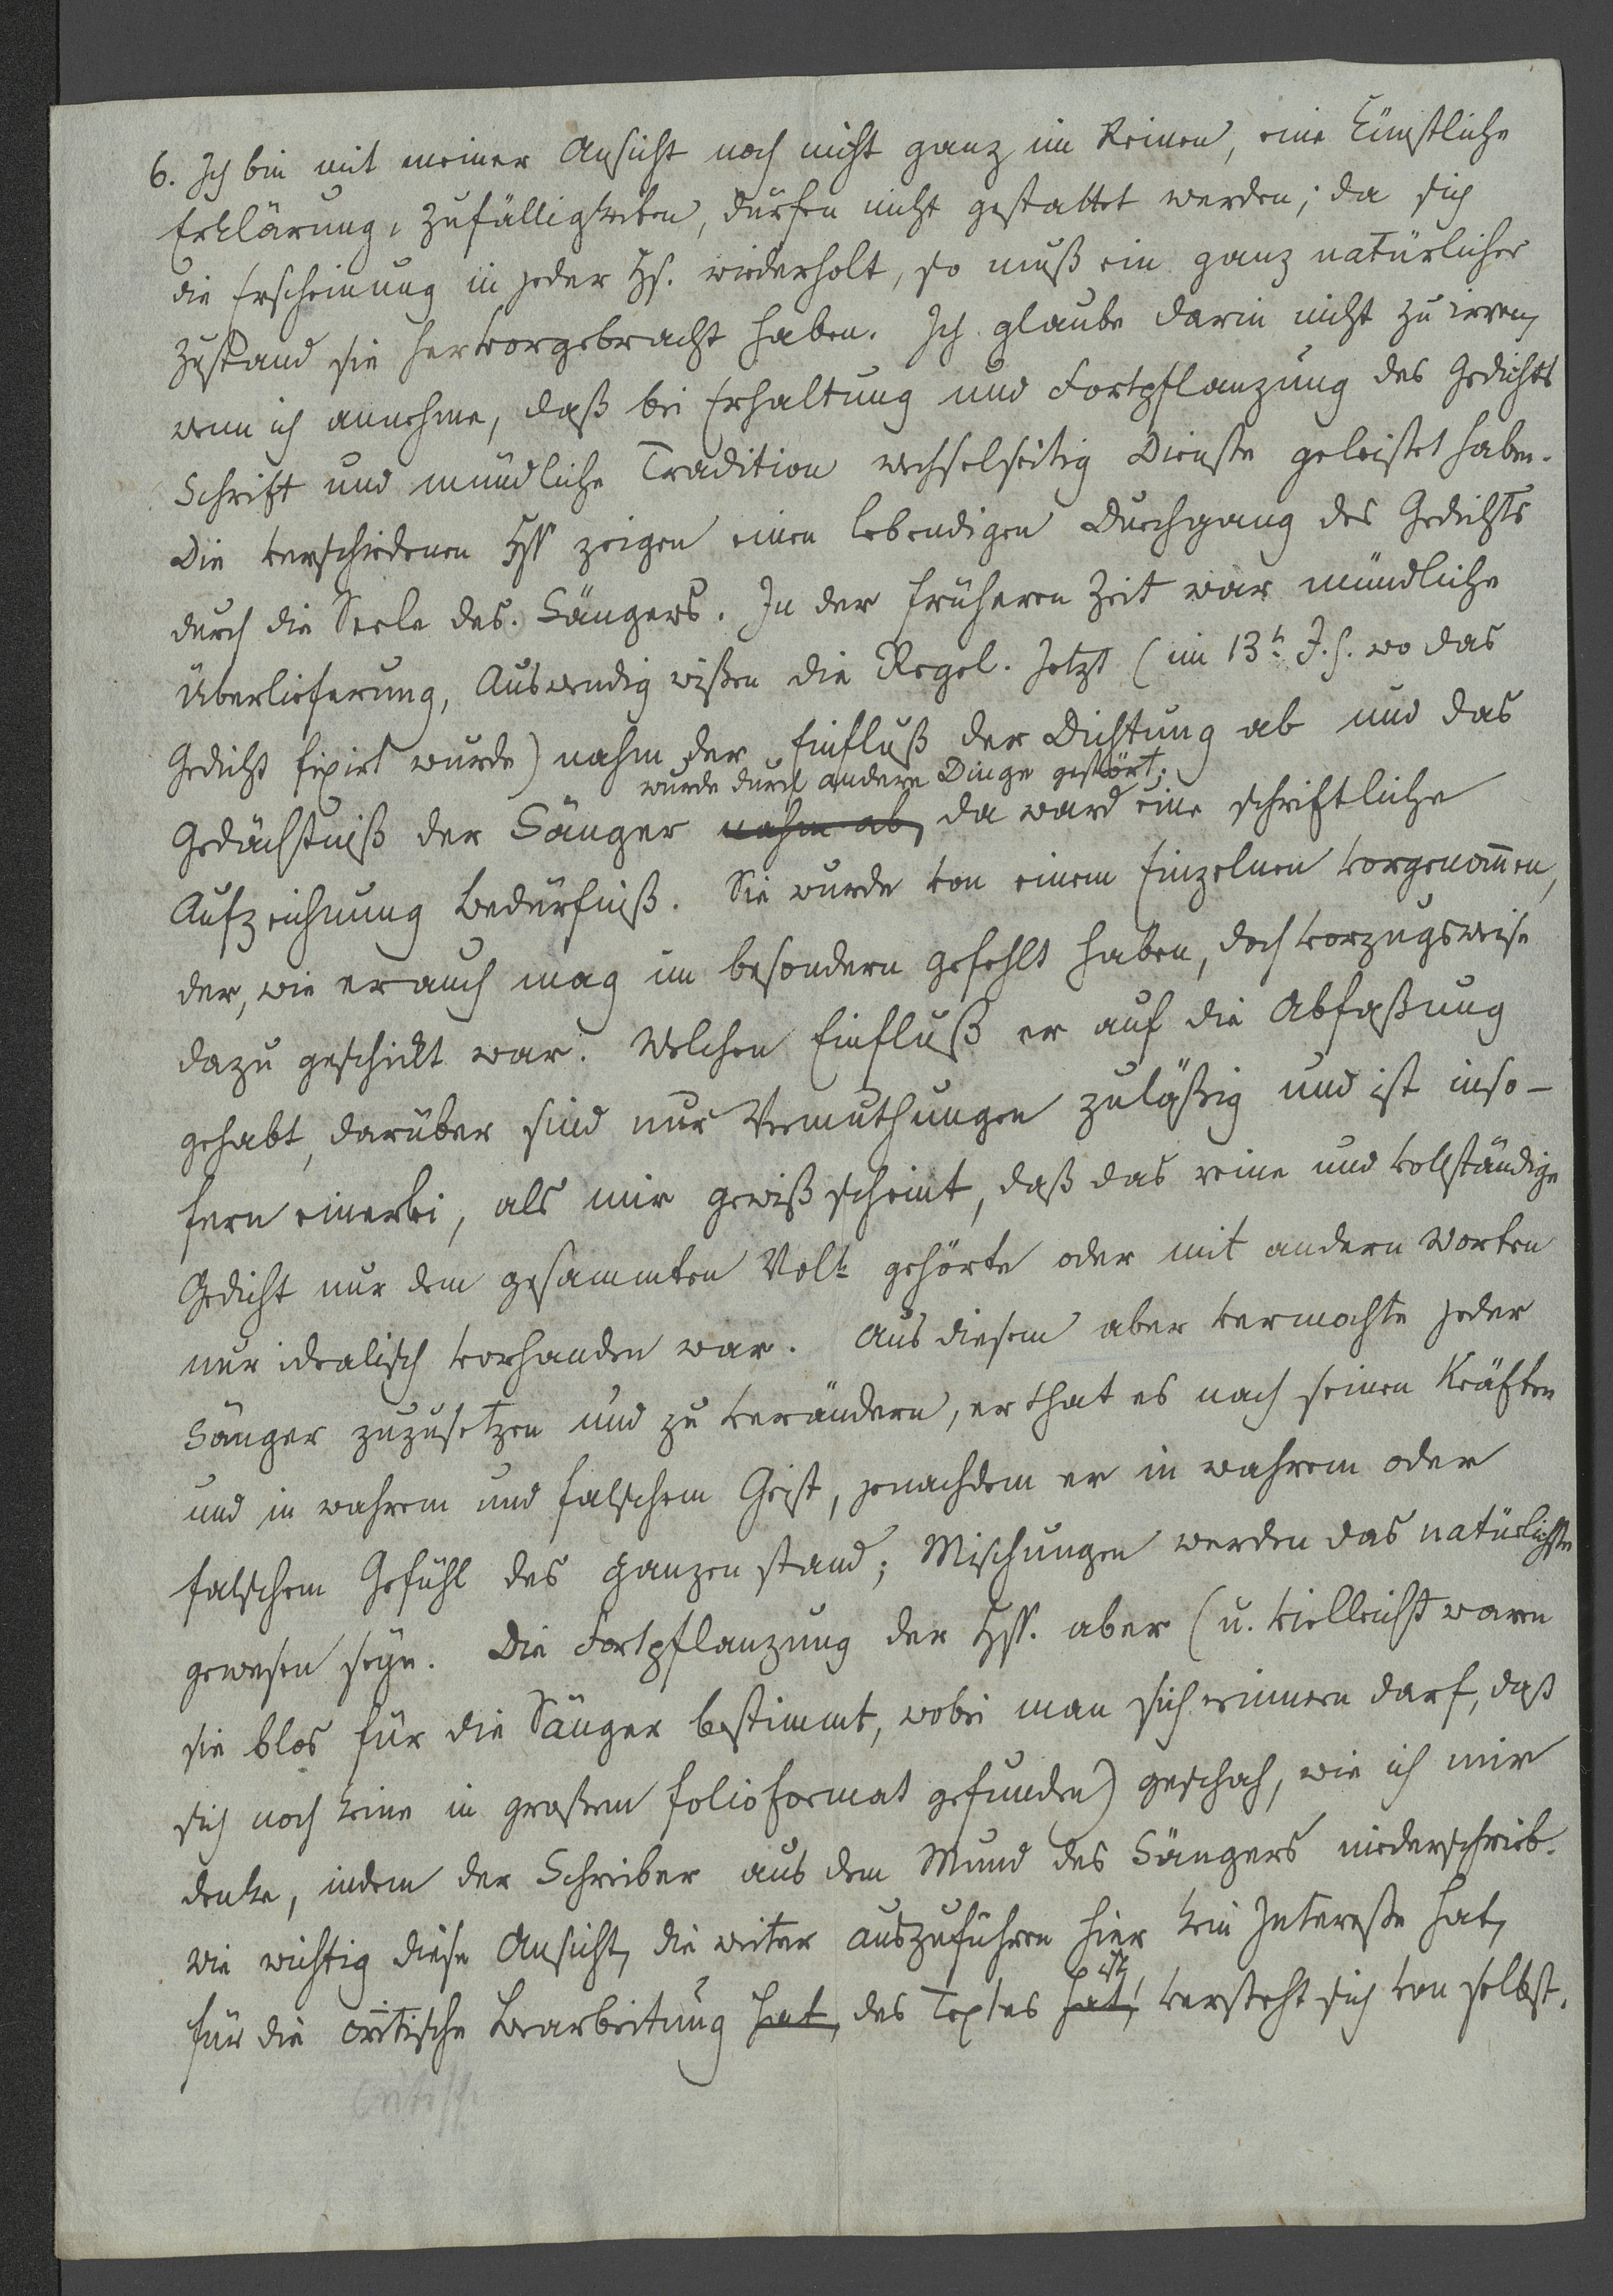 6. Ich bin mit meiner Ansicht noch nicht ganz im Reinen, eine künstliche
Erklärung, Zufälligkeiten, dürfen nicht gestattet werden; da sich
die Erscheinung in jeder Hs. wiederholt, so muß ein ganz natürlicher
Zustand sie hervorgebracht haben. Ich glaube darin nicht zu irren,
wenn ich annehme, daß bei Erhaltung und Fortpflanzung des Gedichts
Schrift und mündliche Tradition wechselseitig Dienste geleistet haben.
Die verschiedenen Hss zeigen einen lebendigen Durchgang des Gedichts
durch die Seele des Sängers. In der früheren Zeit war mündliche
Überlieferung, Auswendig wißen die Regel. Jetzt (im 13t. J.h. wo das
Gedicht fixirt wurde) nahm der Einfluß der Dichtung ab und das
wurde durch andere Dinge gestört;
Gedächtniß der Sänger nahm ab, da ward eine schriftliche
Aufzeichnung Bedürfniß. Sie wurde von einem Einzelnen vorgenom̅en,
der, wie er auch mag im besondern gefehlt haben, doch vorzugsweise
dazu geschickt war. Welchen Einfluß er auf die Abfaßung
gehabt, darüber sind nur Vermuthungen zuläßig und ist inso-
fern einerlei, als mir gewiß scheint, daß das reine und vollständige
Gedicht nur dem gesammten Volk gehörte oder mit andern Worten
nur idealisch vorhanden war. Aus diesem aber vermochte jeder
Sänger zuzusetzen und zu verändern, er that es nach seinen Kräften
und in wahrem und falschem Geist, jenachdem er in wahrem oder
falschem Gefühl des Ganzen stand; Mischungen werden das natürlichste
gewesen seyn. Die Fortpflanzung der Hss. aber (u. vielleicht waren
sie blos für die Sänger bestimmt, wobei man sich erinnern darf, daß
sich noch keine in großem folioformat gefunden) geschah, wie ich mir
denke, indem der Schreiber aus dem Mund des Sängers niederschrieb.
Wie wichtig diese Ansicht, die weiter auszuführen hier kein Intereße hat,
ist
für die critische Bearbeitung hat, des Textes hat, versteht sich von selbst.
critisch